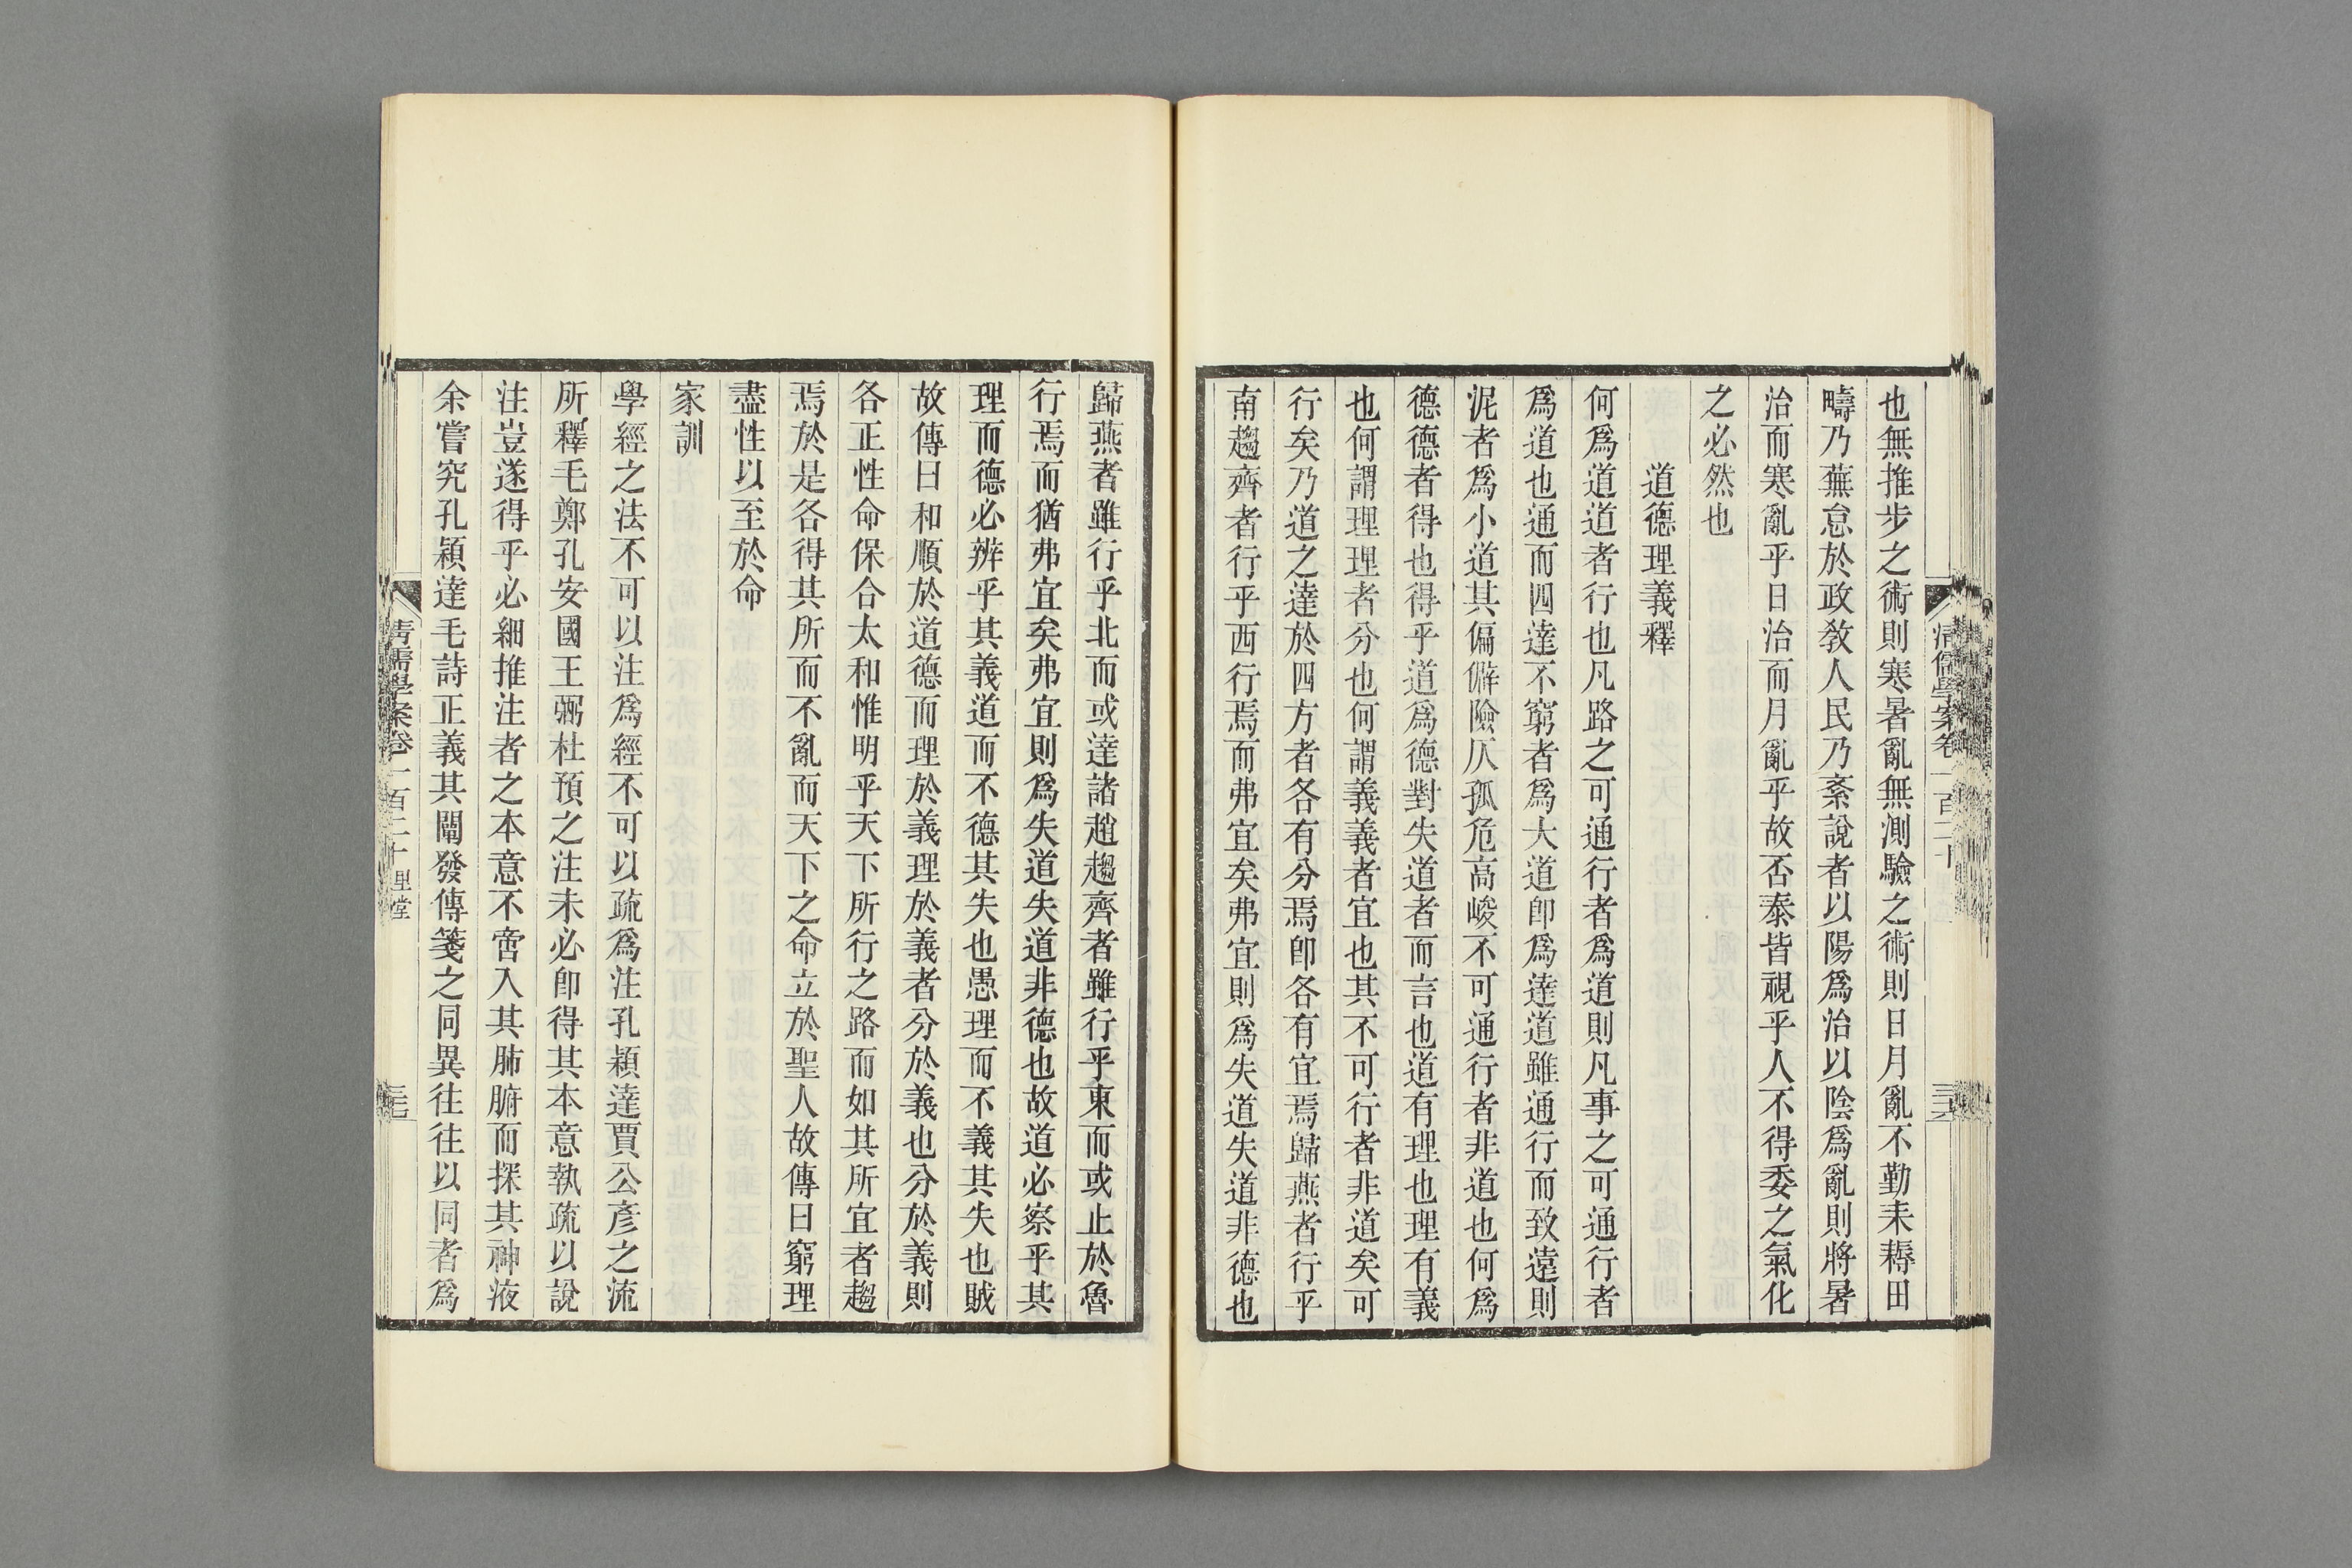 也無推步之術則寒暑亂無測驗之術則日月亂不勤耒耨田
疇乃蕪怠於政敎人民乃紊說者以陽爲治以陰爲亂則將暑
治而寒亂乎日治而月亂乎故否泰皆視乎人不得委之氣化
之必然也
道德理義釋
何爲道道者行也凡路之可通行者爲道則凡事之可通行者
爲道也通而四達不窮者爲大道卽爲達道雖通行而致遠則
泥者爲小道其偏僻險仄孤危高峻不可通行者非道也何爲
德德者得也得乎道爲德對失道者而言也道有理也理有義
也何謂理理者分也何謂義義者宜也其不可行者非道矣可
行矣乃道之達於四方者各有分焉卽各有宜焉歸燕者行乎
南趨齊者行乎西行焉而弗宜矣弗宜則爲失道失道非德也
清儒學案卷一百二十
三六
歸燕者雖行乎北而或達諸趙趨齊者雖行乎東而或止於魯
行焉而猶弗宜矣弗宜則爲失道失道非德也故道必察乎其
理而德必辨乎其義道而不德其失也愚理而不義其失也賊
故傳曰和順於道德而理於義理於義者分於義也分於義則
各正性命保合太和惟明乎天下所行之路而如其所宜者趨
焉於是各得其所而不亂而天下之命立於聖人故傳曰窮理
盡性以至於命
家訓
學經之法不可以注爲經不可以疏爲注孔穎達賈公彥之流
所釋毛鄭孔安國王弼杜預之注未必卽得其本意執疏以說
注豈遂得乎必細推注者之本意不啻入其肺腑而探其神液
余嘗究孔穎達毛詩正義其闡發傳箋之同異往往以同者爲
清儒學案卷一百二十 里堂
三七